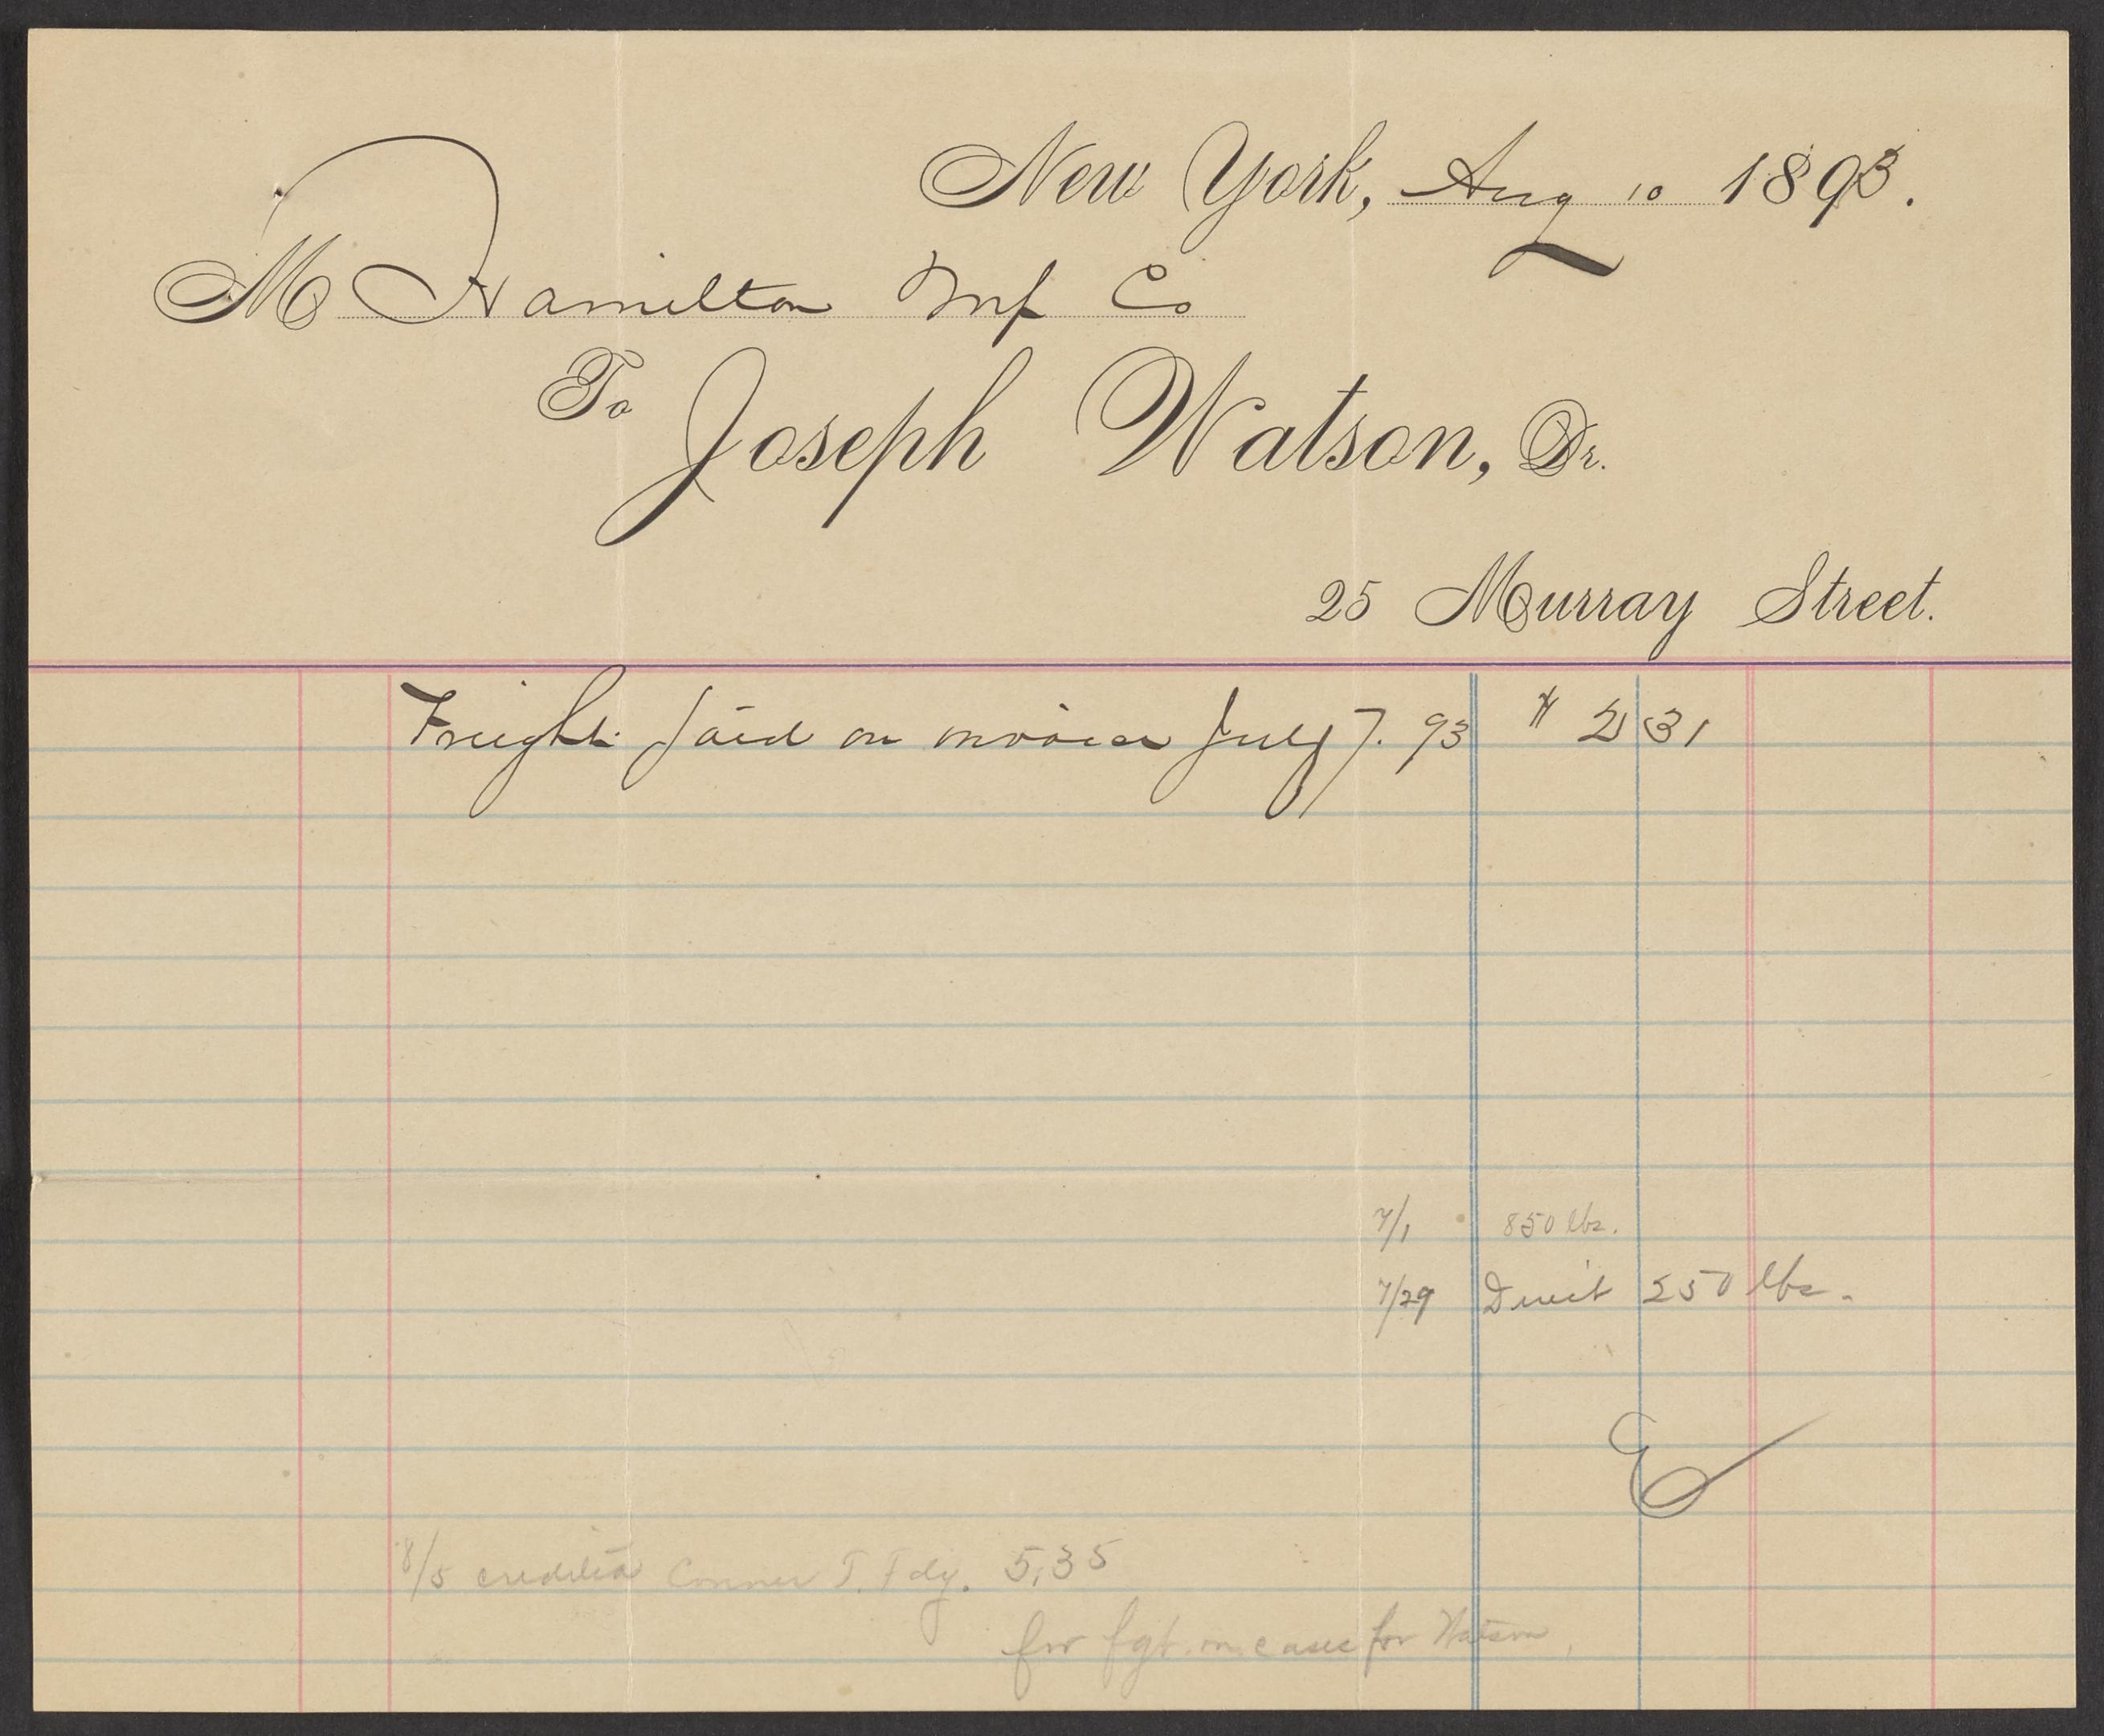 New York, Aug 10 1893.
M Hamilton Mf Co
To Joseph Watson, Dr.
25 Murray Street.
Freight paid on invoice July 7. 93 $ 2 31
7/1 850 lbs.
7/29 Direct 250 lbs.
E
8/5 credited Conner T. Fdy. 5.35
for fgt. on cases for Watson.